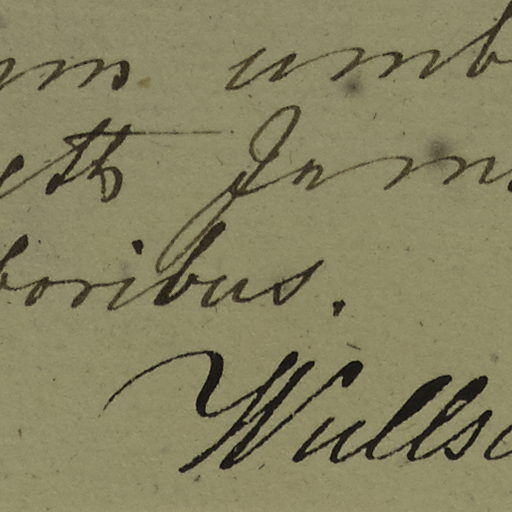 um umb
eth Jam
boribus.
Wullsc